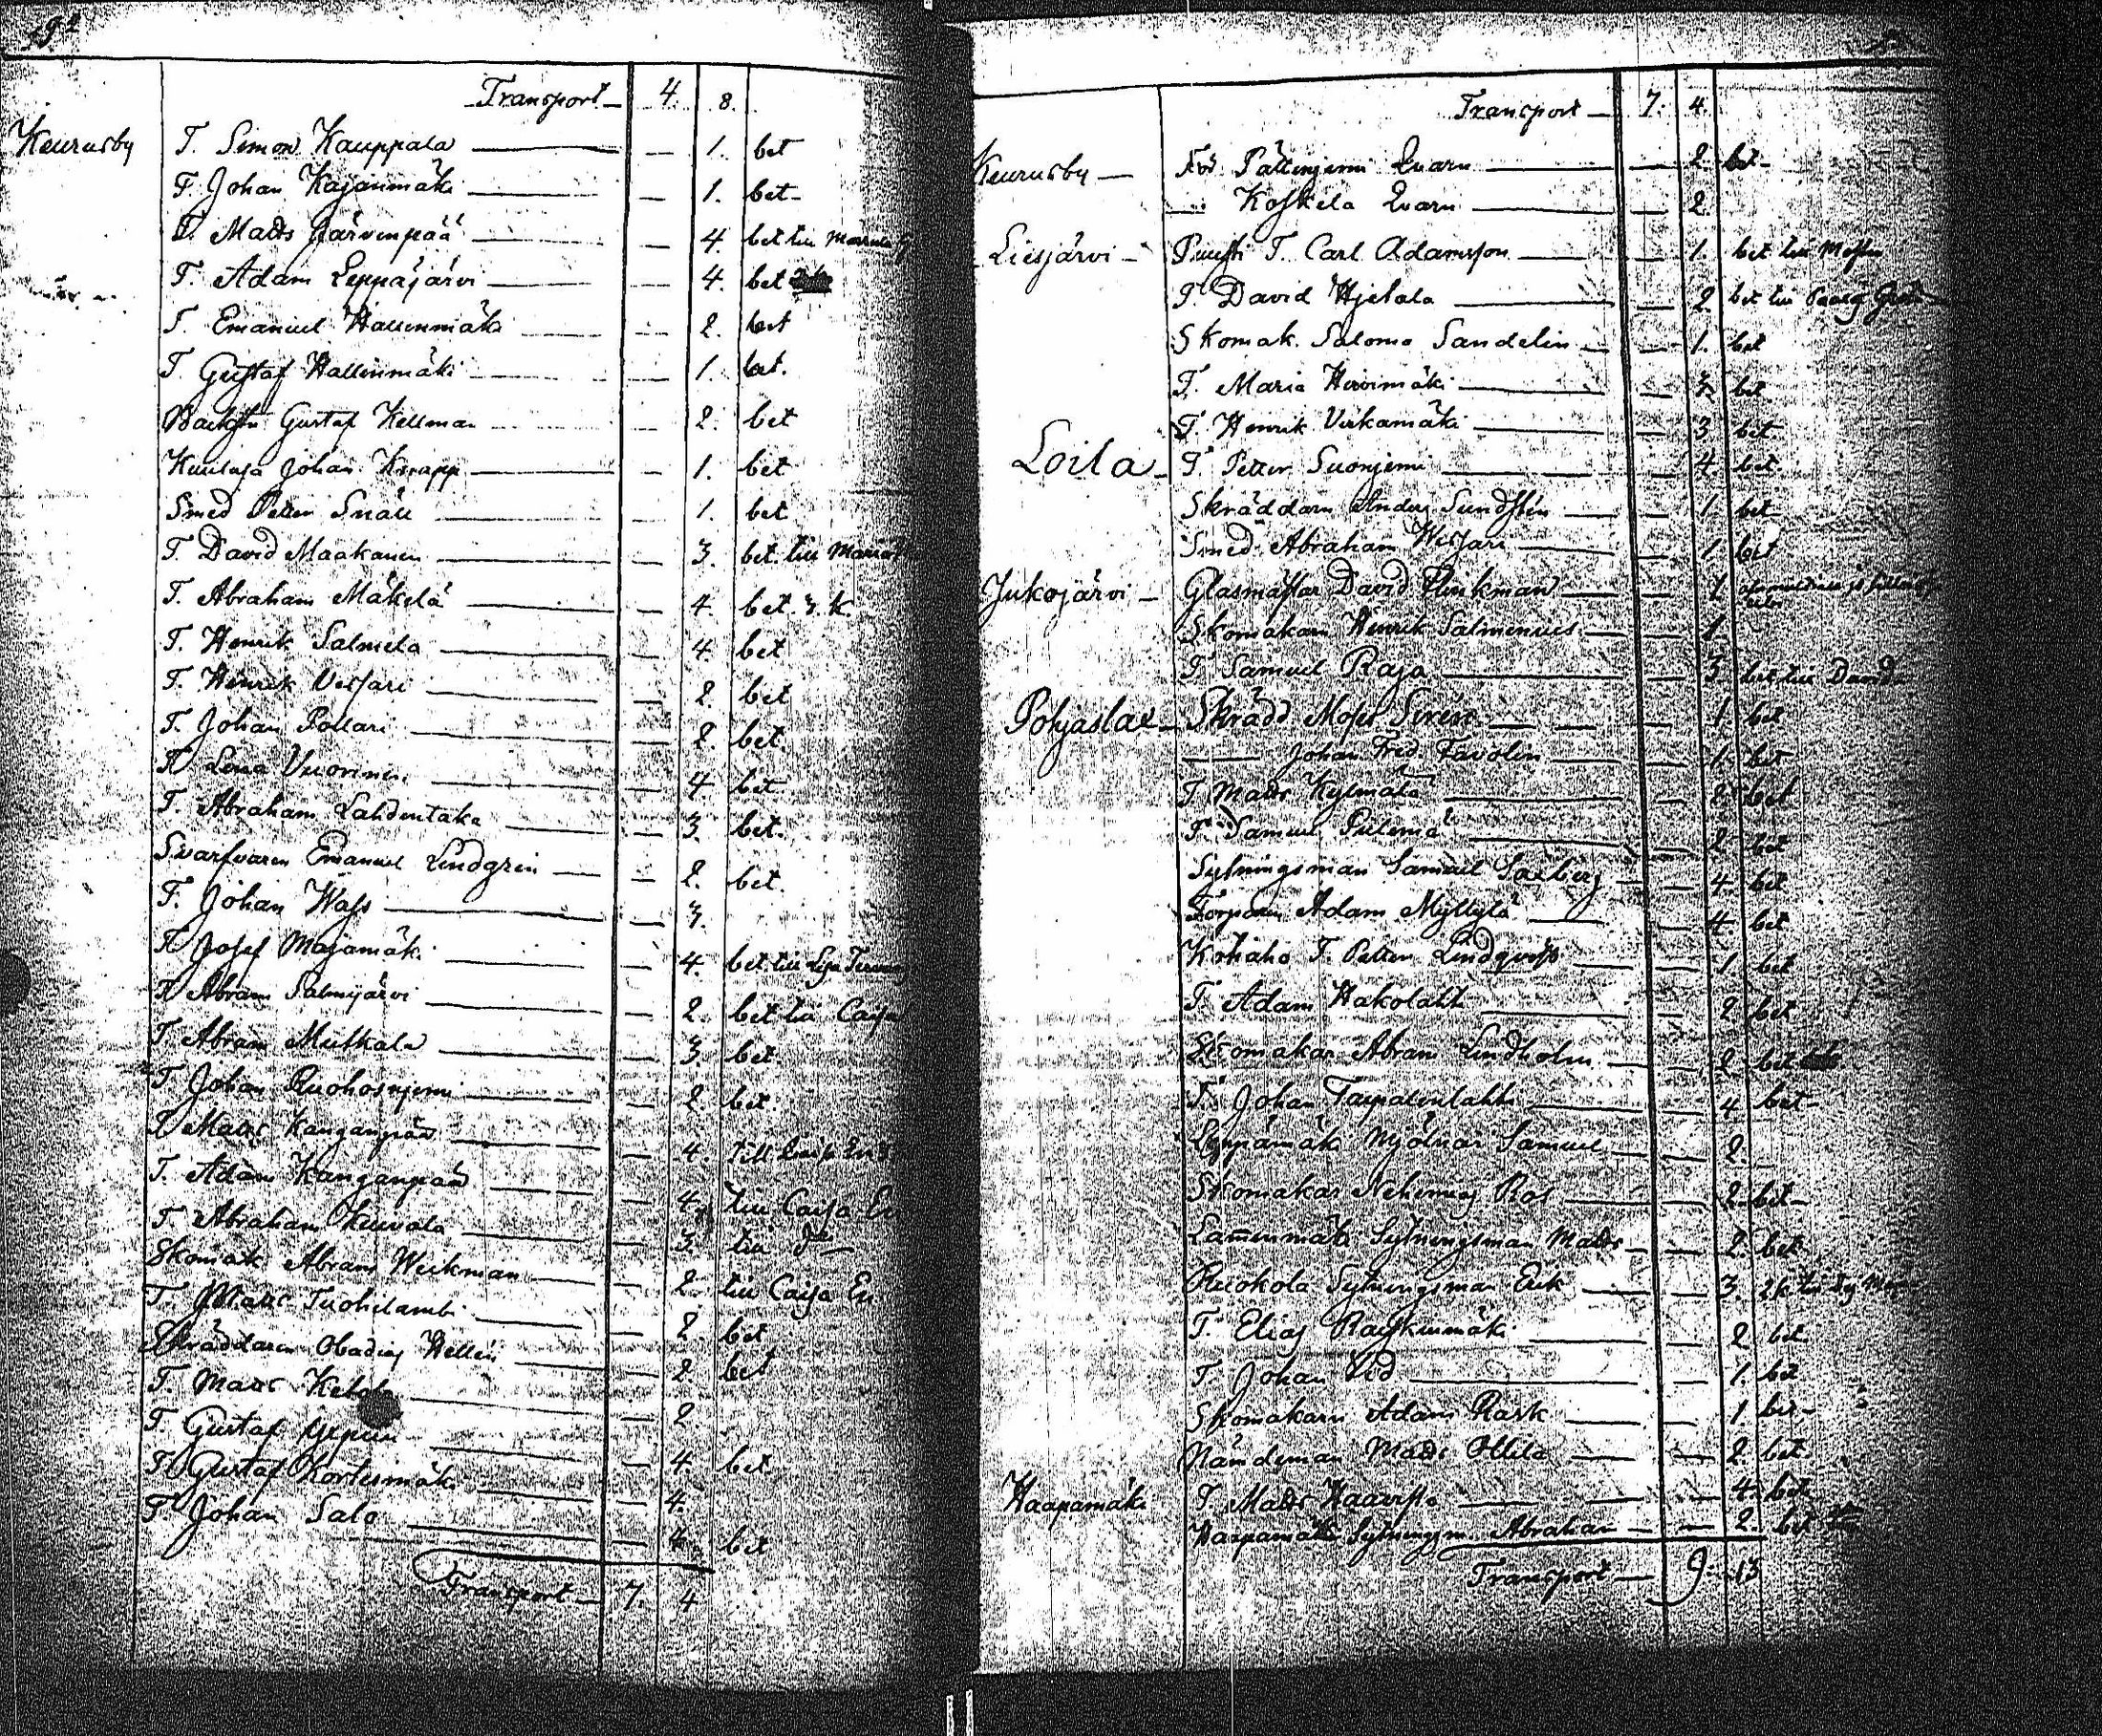 Transport 4. 8.
Keurusby T. Simon Kauppala 1. bet
T. Johan Kajanmäki 1. bet
T. Matts Järvenpää 4. bet till
T. Adam Leppäjärvi 4. bet
T. Emanuel Hallinmäki 2. bet
T. Gustaf Hallinmäki 1. bet.
Gustaf Hellman 2. bet
Johan Knapp 1. bet
Smed Petter Snäll 1. bet
T. David Maakanen 3. bet. till
T. Abraham Mäkelä 4. bet. 3. k.
T. Henrik Salmela 4. bet
T. Henrik Vesjari 2. bet
T. Johan Pollari 2. bet.
T. Lena Vuorinen 4. bet
T. Abraham Lahdentaka 3. bet.
Svarfvaren Emanuel Lindgren 2. bet.
T. Johan Wass 3.
T. Josef Majamäki 4. bet till
T. Abram Salmijärvi 2. bet till Caisa
T. Abram Mutkala 3. bet.
T. Johan Ruohosnjemi 2. bet.
T. Matts Kanganpää 4. till
T. Adam Kanganpää 4. till Caisa En
T. Abraham Kuivala 3. till do
Skomak Abram Weckman 2. till Caisa En
T. Matts Tuohilambi 2. bet
Skräddaren Obadias Hellen 2. bet
T. Matts Ketola 2
T. Gustaf 4. bet
T. Gustaf Kortesmäki 4.
T. Johan Salo 4. bet
Transport 7. 4
Transport 7. 4.
Keurusby Qvarn 2. bet
Koskela Qvarn 2.
Liesjärvi T. Carl Adamsson 1. bet till
T. David Hjetala 2. bet till
Skomak. Salomo Sandelin 1. bet
T. Maria Hirvimäki 3. bet
T. Henrik Virkamäki 3 bet
Loila T. Petter Suonjemi 4 bet
Skräddarn Anders Sundsten 1 bet
Smed Abraham Vesjari 1 bet
Jukojärvi Glasmästar David 1
Skomakarn Henrik Salmenius 1
T. Samuel Raja 3. bet till David
Pohjaslax Skrädd Moses Siren 1. bet
Johan Fred Favolin 1. bet
T. Matts Kylmälä 2 bet
T. Samuel 2 bet
Sytningsman Samuel 4 bet
Torparen Adam Myllylä 4. bet
Kohaho T. Petter Lindqvist 1 bet
T. Adam Hakolaht 2 bet
Skomakar Abram Lindholm 2 bet
T. Johan Taipalenlahti 4 bet
Samuel 2.
Skomakar Nehemias Ros 2 bet
Lamminmäki Sytningsman Matts 2. bet
Ruokola Sytningsman Erik 3. 2 k till
T. Elias Raiskinmäki 2 bet.
T. Johan 1. bet
Skomakarn Adam Rask 1 bet
Nämdeman Matts Ollila 2. bet
Haapamäki T. Matts Haavisto 4. bet
Haapamäki Sytningsm. Abraham 2. bet
Transport 9. 13